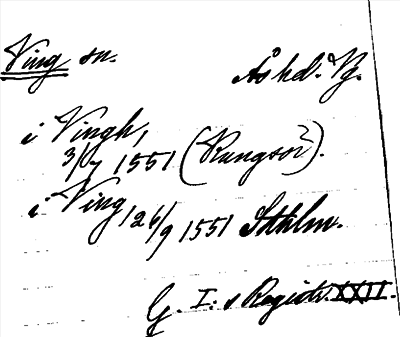 Ving sn. Ås hd. Vg.
i Vingh,
3/7 1551 (Kungsör).
i Ving, 26/9 1551 Sthlm.
G. I:s Registr. XXII.